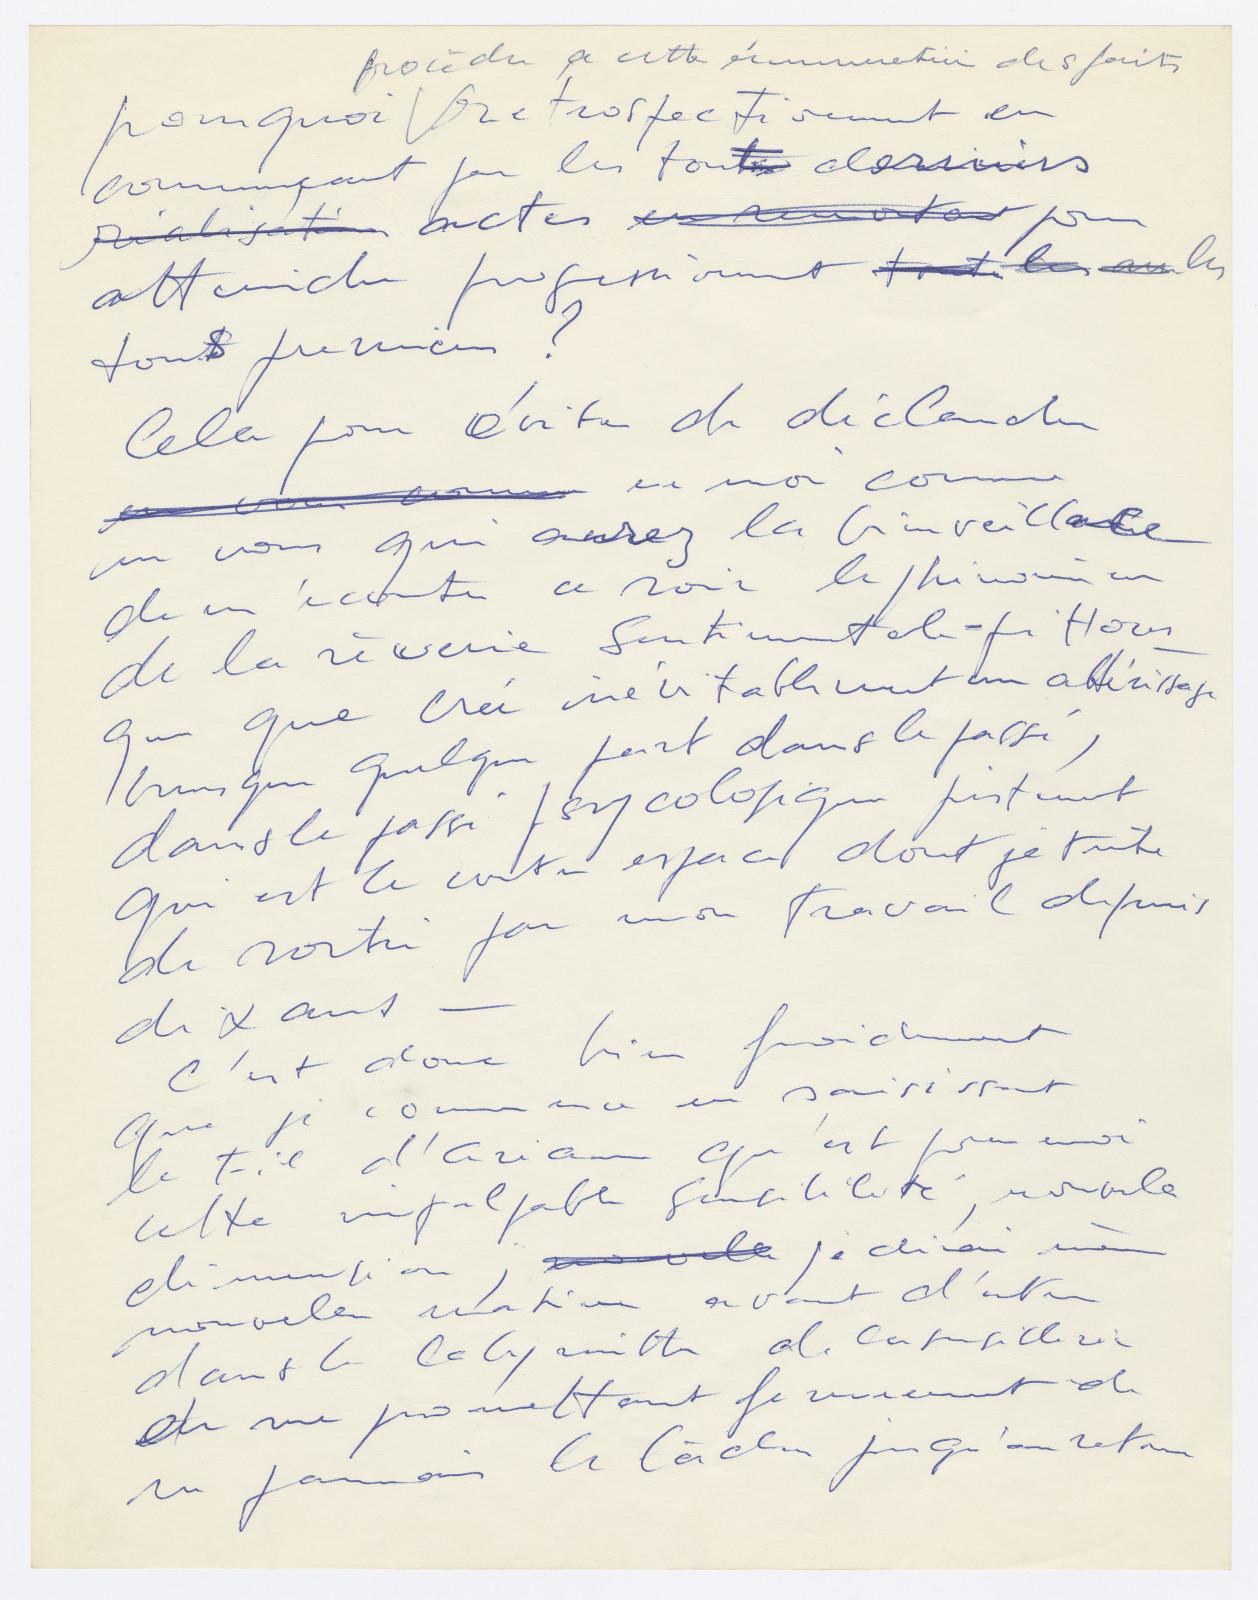 procéder a cette énumeration des faits
pourquoi retrospectivement en
commençant par les tous derniers
réalisation actes en remontant pour
atteindre progressivement toute les an les
tous premiers ?
Cela pour éviter de déclencher
en vous comme en moi comme
en vous qui aurez la bienveillance
de m'écouter ce soir le phénomène
de la rêverie sentimentale-pittores
que que crée inévitablement un attérissage
brusque quelque part dans le passé,
dans le passé psycologique justement
qui est le contre espace dont je tente
de sortir par mon travail depuis
dix ans —
C'est donc bien froidement
que je commence en saisissant
le fil d'Ariane qu'est pour moi
cette impalpable sensibilité, nouvelle
dimension, nouvelle je dirai même
nouvelle matière avant d'entrer
dans le labyrinthe de la sensiblerie
de me promettant fermement de
ne jamais le lâcher jusqu'au retour